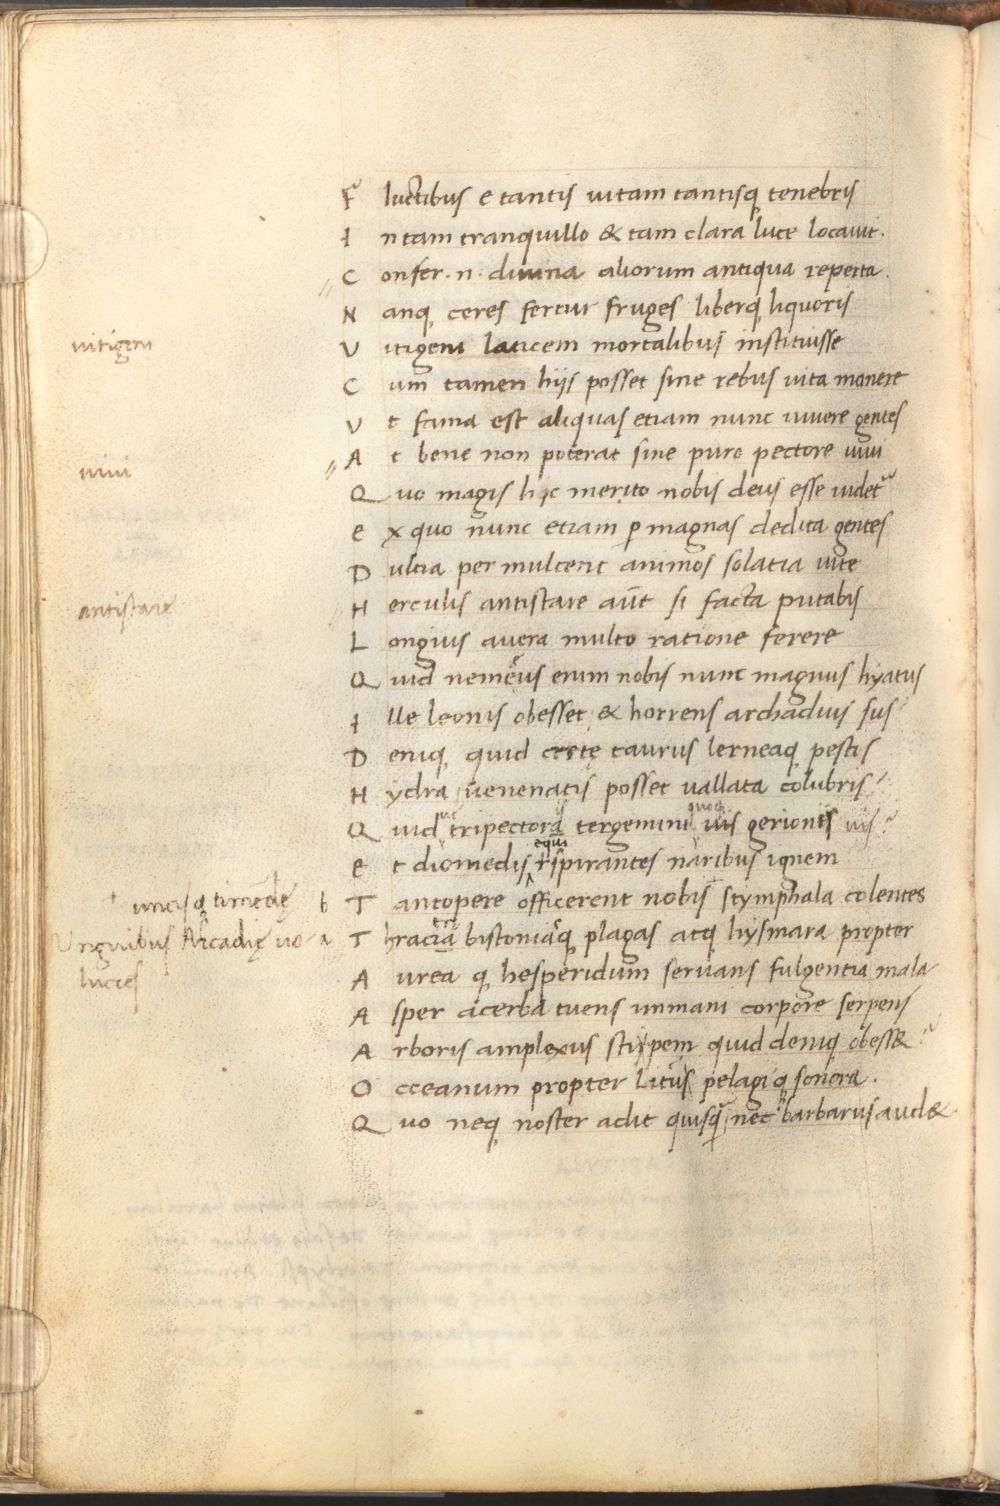 Fluctibus e tantis uitam tantisq tenebris
Intam tranquillo & tam clara luce locauit.
Confer .n. diuina aliorum antiqua reperta.
Nanq ceres fertur fruges liberq liquoris
uitigeni
Vitigeni laticem mortalibus instituisse
Cum tamen hijs posset sine rebus uita manere
Vt fama est aliquas etiam nunc uiuere gentes
uiui
At bene non poterat sine puro pectore uiui
Quo magis hic merito nobis deus esse uidet
Ex quo nunc etiam p magnas dedita gentes
Dulcia per mulcent animos solatia uite
antistare
Herculis antistare aut si facta putabis
Longius auera multo ratione ferere
Quid nemeus enim nobis nunc magnus hyatus
Ille leonis obesset & horrens archadius sus
Deniq quid crete taurus lerneaq pestis
Hydra uenenatis posset uallata colubris
Quid tripectora tergemini uis gerionis uis?
equi
Et diomedis spirantes naribus ignem
uncisq timedę b
Tantopere officerent nobis stymphala colentes
Vnguibus Arcadię uo a
Thracia bistoniasq plagas atq hysmara propter
lucres
Aurea q hesperidum seruans fulgentia mala
Asper acerba tuens immani corpore serpens
Arboris amplexus stirpem quid deniq obess&?
Occeanum propter Litus pelagiq sonora.
Quo neq noster adit quisq nec barbarus aud&